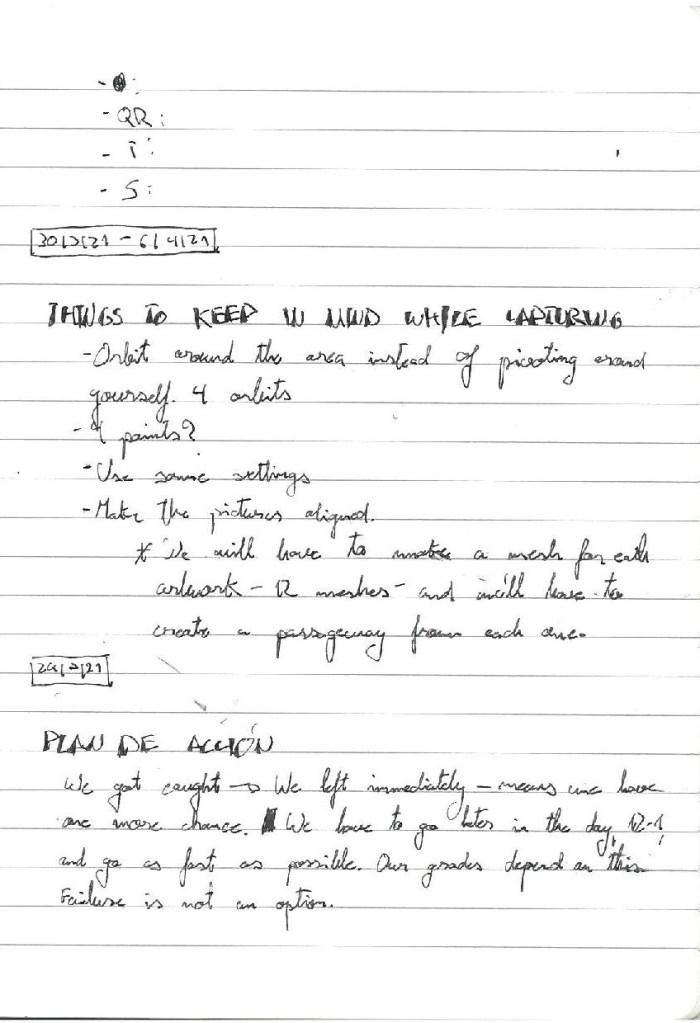 - QR:
- T:
- S:
30/3/21 - 6/4/21
THINGS TO KEEP IN MIND WHILE CAPTURING
- Orbit around the area instead of pivoting around
yourself. 4 orbits
- 4 points?
- Use same settings
- Make the pictures aligned.
* We will have to make a mesh for each
artwork - 12 meshes - and will have to
create a passageway from each one.
PLAN DE ACCIÓN
We got caught → We left immediately - means we have
one more chance. We have to go later in the day, 12-1,
and go as fast as possible. Our grades depend on this.
Failure is not an option.